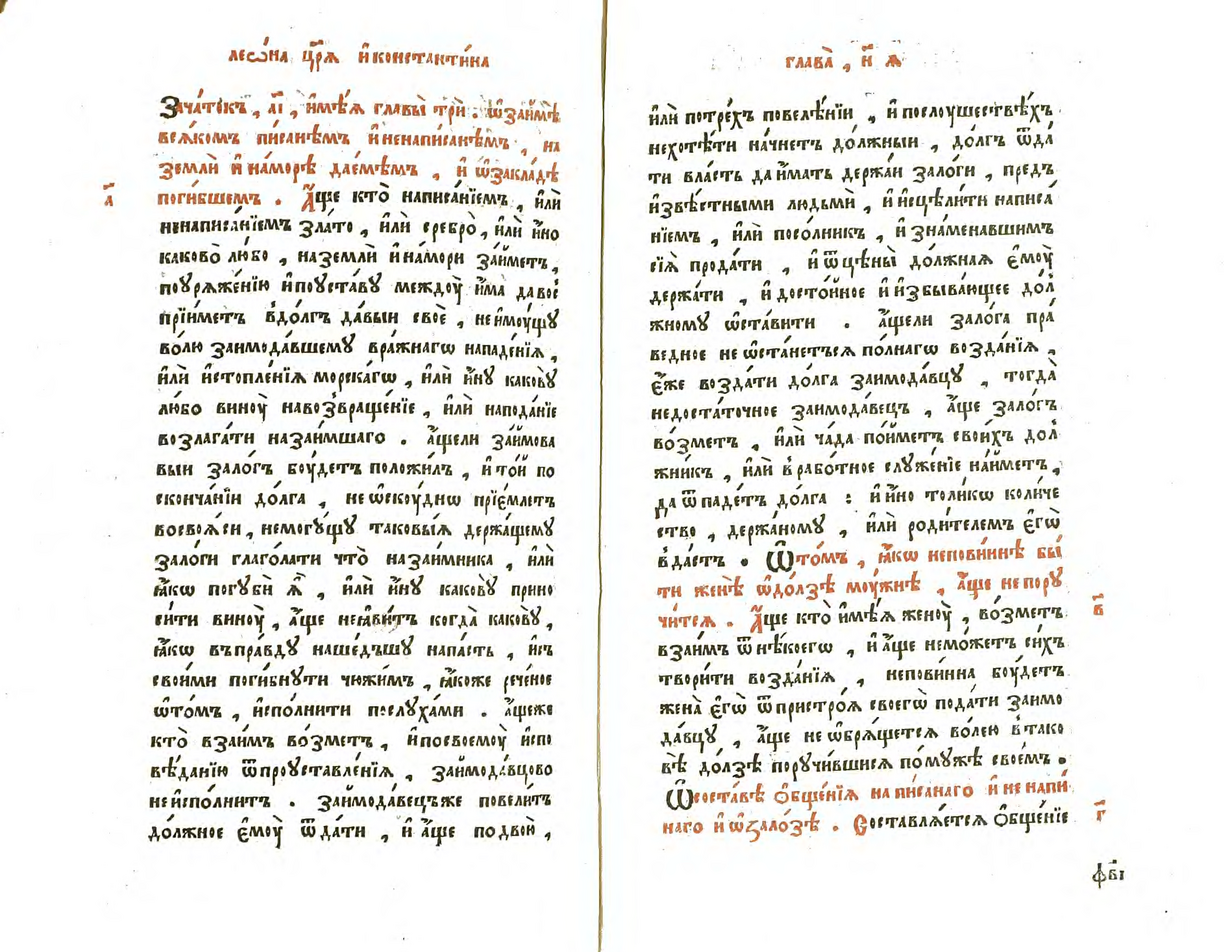 леѡ́на цр҃ѧ и҆ конста́нти́на
Зача́токъ , а҃і , и҆мѣ́ѧ главы̀ трѝ . ѡ҆за́ймѣ
всѧ́комъ пи́санѣмъ и҆ ненапи́санѣмъ , на
землѝ и҆ на́морѣ дае́мѣмъ , и҆ ѡ҆закла́дѣ
поги́бшемъ . А҆́ще кто̀ написа́нїемъ , и҆лѝ
а҃
ненаписа́нїемъ зла́то , и҆лѝ сребро̀ , и҆лѝ и҆́но
каково̀ лю́бо , на землѝ и҆ на́мори за́йметъ ,
поурѧже́нїю и҆ поуста́ву между҆ и҆́ма да вое҆
прїи́метъ в̾до́лгъ да́выи своѐ , не и҆мꙋ́щꙋ
во́лю заимода́вшемꙋ вра́жнагѡ нападе́нїѧ ,
и҆лѝ и҆стопле́нїѧ морска́гѡ , и҆лѝ и҆́нꙋ каковꙋ̀
лю́бо винꙋ̀ навозвраще́нїе , и҆лѝ напода́нїе
возлага́ти на заи́мшаго . а҆́щели за́ймова
выи зало́гъ бꙋ́детъ положи́лъ , и҆ то́й по
сконча́нїи до́лга , не ѡ҆скꙋ́днѡ прїе́млетъ
восвоѧ́си , немогꙋ́щꙋ таковы́ѧ держа́щемꙋ
зало́ги глаго́лати что̀ на заи́мника , и҆лѝ
ꙗ҆́кѡ погубѝ ѧ҆̀ , и҆лѝ и҆́нꙋ каковꙋ̀ прино
си́ти винꙋ̀ , а҆́ще неꙗ҆ви́тъ когда̀ какову̀ ,
ꙗ҆́кѡ въпра́вдꙋ наше́дъшꙋ напа́сть , и҆съ
свои́ми поги́бнꙋти чюжи́мъ , ꙗ҆́коже рече́ное
ѡ҆то́мъ , и҆спо́лнити послꙋ́хами . а҆́щеже
кто̀ взаи́мъ во́зметъ , и҆ посвоемꙋ̀ и҆спо
вѣ́данїю ѿпроуставле́нїѧ , заимода́вцово
не и҆спо́лнитъ . заимода́вецъже повели́тъ
до́лжное є҆мꙋ̀ ѿда́ти , и҆ а҆́ще по двою̀ ,
глава̀ , н҃ ѧ҃
и҆лѝ потре́хъ повелѣ́нїи , и҆ послоушествѣ́хъ
нехотѣ́ти на́чнетъ до́лжныи , до́лгъ ѿда́
ти вла́сть да и҆́мать держа́и зало́ги , пре́дъ
и҆звѣ́стными людьмѝ , и҆ и҆сцѣли́ти написа́
нїемъ , и҆лѝ посо́лникъ , и҆ зна́менавшимъ
сїѧ̀ прода́ти , и҆ ѿцѣны̀ до́лжнаѧ є҆мꙋ̀
держа́ти , и҆ досто́йное и҆ и҆збыва́ющее до́л
жномꙋ ѡ҆ста́вити . а҆́щели зало́га пра́
ведное не ѡ҆ста́нетъсѧ по́лнагѡ возда́нїѧ ,
є҆́же возда́ти до́лга заимода́вцꙋ , тогда̀
недоста́точное заимода́вецъ , а҆́ще зало́гъ
во́зметъ , и҆лѝ ча́да по́йметъ свои́хъ до́л
жникъ , и҆лѝ в̾рабо́тное слꙋже́нїе на́йметъ ,
да ѿпаде́тъ до́лга : и҆ и҆́но толи́кѡ количе
ство , держа́номꙋ , и҆лѝ роди́телемъ є҆гѡ̀
вда́стъ . Ѿто́мъ , ꙗ҆́кѡ непови́ннѣ бы́
ти женѣ̀ ѡ҆до́лзѣ мꙋ́жнѣ , а҆́ще непорꙋ
чи́тсѧ . А҆́ще кто̀ и҆мѣ́ѧ женꙋ̀ , во́зметъ
в҃
взаи́мъ ѿнѣ́коегѡ , и҆ а҆́ще немо́жетъ си́хъ
твори́ти возда́нїѧ , непови́нна бꙋ́детъ
жена̀ є҆гѡ̀ ѿпристро́ѧ своегѡ̀ пода́ти заимо
да́вцꙋ , а҆́ще не ѡ҆брѧ́щетсѧ во́лею в̾тако
вѣ̀ до́лзѣ порꙋчи́вшисѧ помꙋ́жѣ свое́мъ .
Ѡ҆соста́вѣ ѻ҆бще́нїѧ на писа́наго и҆ не напи́
наго и҆ ѡ҆зало́зѣ . Составлѧ́етсѧ ѻ҆бще́нїе
г҃
ф҃ві